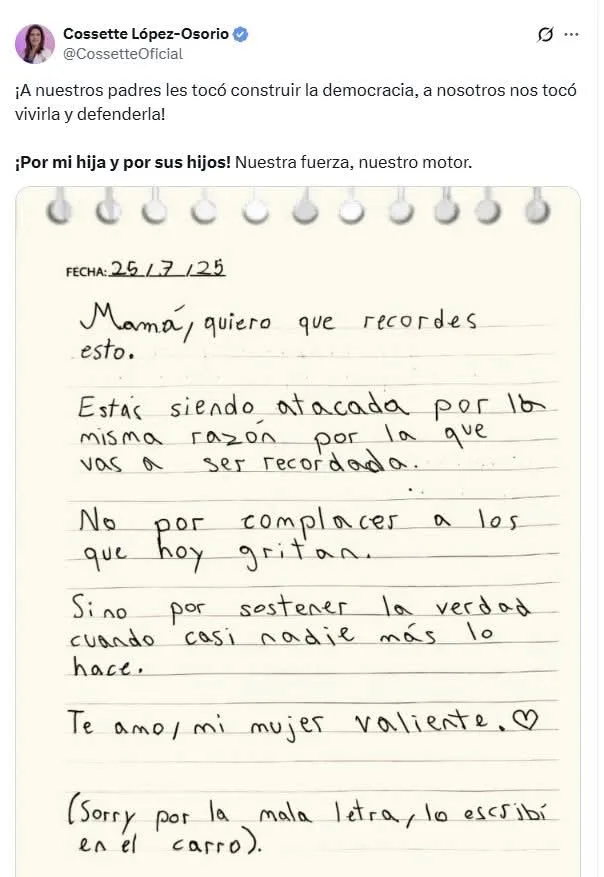 Cossette López-Osorio
@CossetteOficial
¡A nuestros padres les tocó construir la democracia, a nosotros nos tocó
vivirla y defenderla!
¡Por mi hija y por sus hijos! Nuestra fuerza, nuestro motor.
FECHA: 25/7/25
Mamá, quiero que recordes
esto.
Estás siendo atacada por la
misma razón por la que
vas a ser recordada.
No por complacer a los
que hoy gritan.
Sino por sostener la verdad
cuando casi nadie más lo
hace.
Te amo, mi mujer valiente.♡
(Sorry por la mala letra, lo escribí
en el carro).